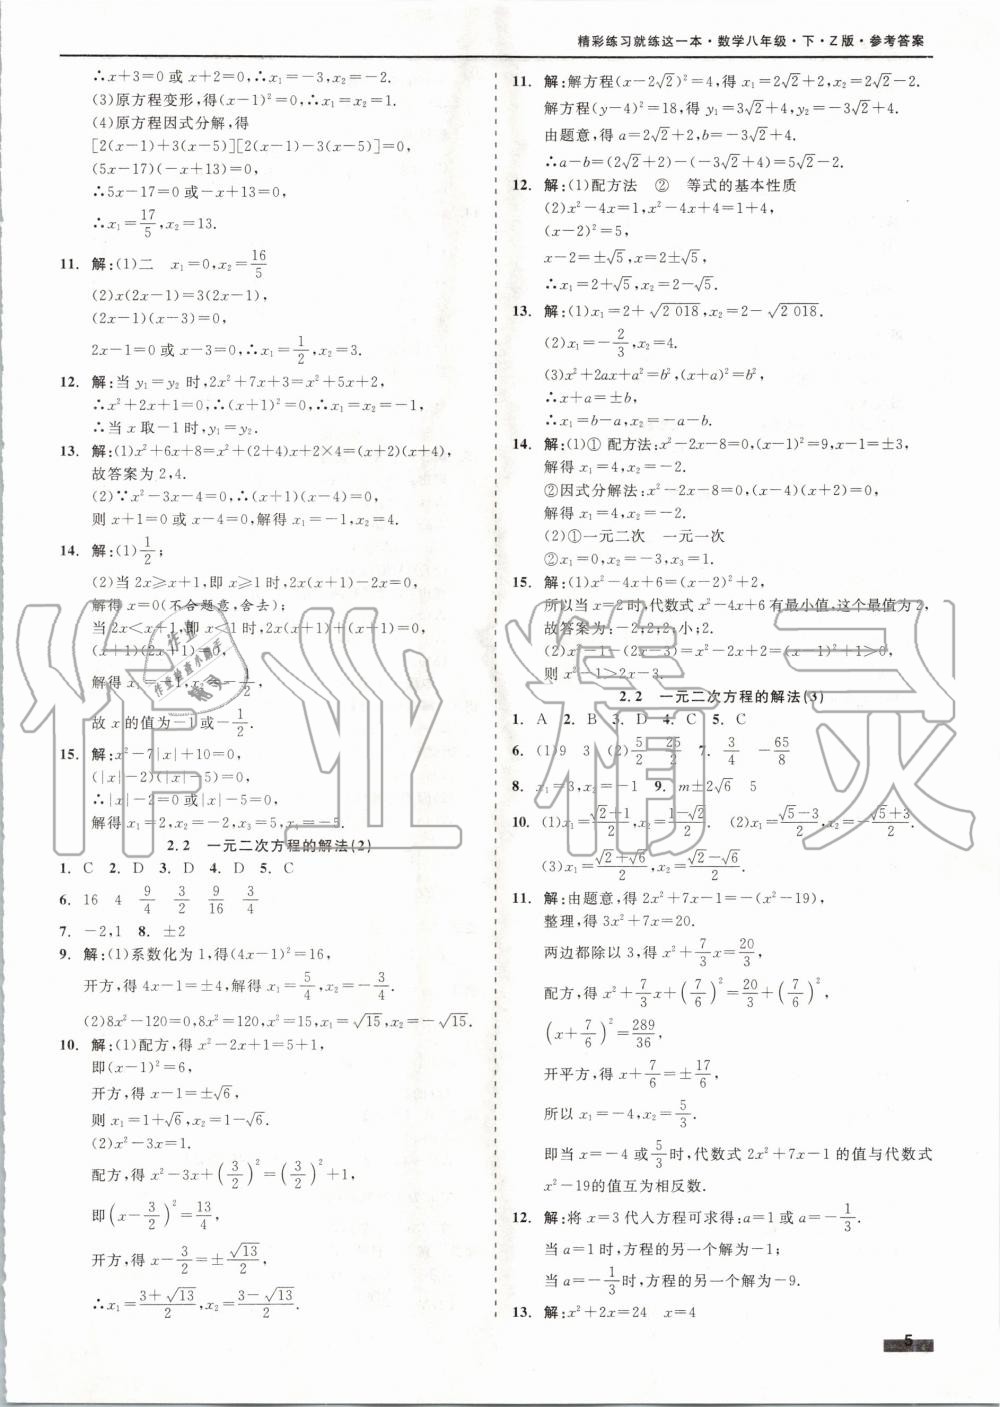 精彩练习就练这一本·数学八年级·下·Z版·参考答案
∴x+3=0或x+2=0,∴x₁=-3,x₂=-2.
(3)原方程变形,得(x-1)²=0,∴x₁=x₂=1.
(4)原方程因式分解,得
[2(x-1)+3(x-5)][2(x-1)-3(x-5)]=0,
(5x-17)(-x+13)=0,
∴5x-17=0或-x+13=0,
∴x₁=17/5,x₂=13.
11. 解:(1)二 x₁=0,x₂=16/5
(2)x(2x-1)=3(2x-1),
(2x-1)(x-3)=0,
2x-1=0或x-3=0,∴x₁=1/2,x₂=3.
12. 解:当y₁=y₂时,2x²+7x+3=x²+5x+2,
∴x²+2x+1=0,(x+1)²=0,∴x₁=x₂=-1,
∴当x取-1时,y₁=y₂.
13. 解:(1)x²+6x+8=x²+(2+4)x+2×4=(x+2)(x+4),
故答案为2,4.
(2)∵x²-3x-4=0,∴(x+1)(x-4)=0,
则x+1=0或x-4=0,解得x₁=-1,x₂=4.
14. 解:(1)1/2;
(2)当2x≥x+1,即x≥1时,2x(x+1)-2x=0,
解得x=0(不合题意,舍去);
当2x<x+1,即x<1时,2x(x+1)+(x+1)=0,
(x+1)(2x+1)=0,
解得x₁=-1,x₂=-1/2,
故x的值为-1或-1/2.
15. 解:x²-7|x|+10=0,
(|x|-2)(|x|-5)=0,
∴|x|-2=0或|x|-5=0,
解得x₁=2,x₂=-2,x₃=5,x₄=-5.
2.2 一元二次方程的解法(2)
1. C 2. D 3. D 4. D 5. C
6. 16 4 9/4 3/2 9/16 3/4
7. -2,1 8. ±2
9. 解:(1)系数化为1,得(4x-1)²=16,
开方,得4x-1=±4,解得x₁=5/4,x₂=-3/4.
(2)8x²-120=0,8x²=120,x²=15,x₁=√15,x₂=-√15.
10. 解:(1)配方,得x²-2x+1=5+1,
即(x-1)²=6,
开方,得x-1=±√6,
则x₁=1+√6,x₂=1-√6.
(2)x²-3x=1.
配方,得x²-3x+(3/2)²=(3/2)²+1,
即(x-3/2)²=13/4,
开方,得x-3/2=±√13/2,
∴x₁=(3+√13)/2,x₂=(3-√13)/2.
11. 解:解方程(x-2√2)²=4,得x₁=2√2+2,x₂=2√2-2.
解方程(y-4)²=18,得y₁=3√2+4,y₂=-3√2+4.
由题意,得a=2√2+2,b=-3√2+4.
∴a-b=(2√2+2)-(-3√2+4)=5√2-2.
12. 解:(1)配方法 ② 等式的基本性质
(2)x²-4x=1,x²-4x+4=1+4,
(x-2)²=5,
x-2=±√5,
∴x₁=2+√5,x₂=2-√5.
13. 解:(1)x₁=2+√2 018,x₂=2-√2 018.
(2)x₁=-2/3,x₂=4.
(3)x²+2ax+a²=b²,(x+a)²=b²,
∴x+a=±b,
∴x₁=b-a,x₂=-a-b.
14. 解:(1)①配方法:x²-2x-8=0,(x-1)²=9,x-1=±3,
解得x₁=4,x₂=-2.
②因式分解法:x²-2x-8=0,(x-4)(x+2)=0,
解得x₁=4,x₂=-2.
(2)①一元二次 一元一次
②x₁=0,x₂=-3,x₃=1.
15. 解:(1)x²-4x+6=(x-2)²+2,
所以当x=2时,代数式x²-4x+6有最小值,这个最值为2,
故答案为:-2;2;2;小;2.
(2)x²-1-(2x-3)=x²-2x+2=(x-1)²+1>0,
则x²-1>2x-3.
2.2 一元二次方程的解法(3)
1. A 2. B 3. D 4. C 5. C
6. (1)9 3 (2)5/2 25/2 7. 3/4 -65/8
8. x₁=3,x₂=-1 9. m±2√6 5
10. (1)x₁=(√2-1)/2,x₂=(1-√2)/2. (2)x₁=(√5-3)/2,x₂=-(√5+3)/2.
(3)x₁=(√2+√6)/2,x₂=(√2-√6)/2.
11. 解:由题意,得2x²+7x-1=-(x²-19),
整理,得3x²+7x=20.
两边都除以3,得x²+7/3x=20/3,
配方,得x²+7/3x+(7/6)²=20/3+(7/6)²,
(x+7/6)²=289/36,
开平方,得x+7/6=±17/6,
所以x₁=-4,x₂=5/3.
即当x=-4或5/3时,代数式2x²+7x-1的值与代数式
x²-19的值互为相反数.
12. 解:将x=3代入方程可求得:a=1或a=-1/3.
当a=1时,方程的另一个解为-1;
当a=-1/3时,方程的另一个解为-9.
13. 解:x²+2x=24 x=4
5
作业精灵